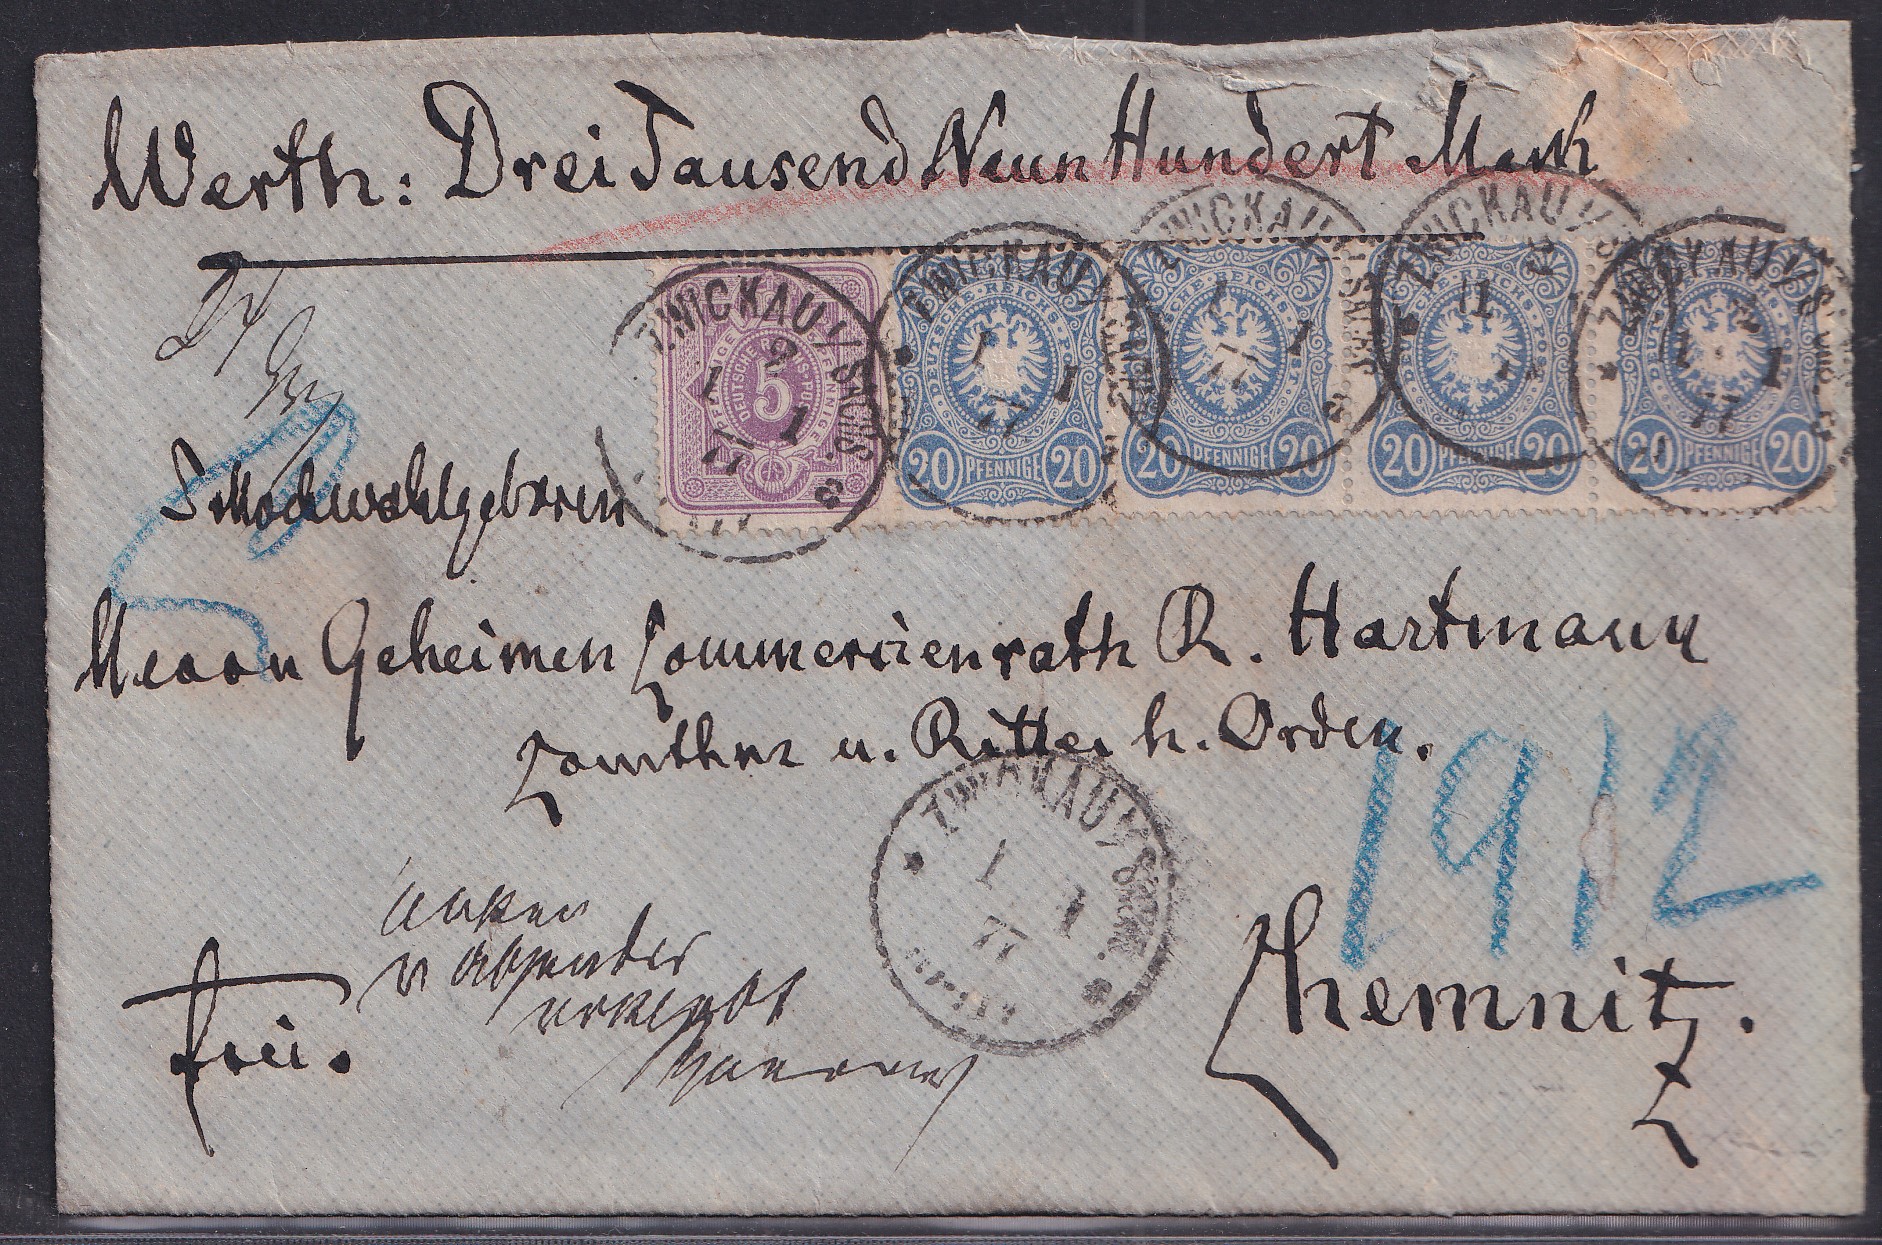 Werth: Drei Tausend Neun Hundert Mark
ZWICKAU i/ SACHS.
1 1
77
DEUTSCHE REICHS-POST
5
PFENNIGE PFENNIGE
ZWICKAU i/ SACHS.
1 1
77
DEUTSCHE REICHS-POST
20 PFENNIGE 20
ZWICKAU i/ SACHS.
1 1
77
DEUTSCHE REICHS-POST
20 PFENNIGE 20
ZWICKAU i/ S
DEUTSCHE REICHS-POST
20 PFENNIGE 20
ZWICKAU i/ SACHS
1 1
77
DEUTSCHE REICHS-POST
20 PFENNIGE 20
Hochwohlgeboren
Herrn Geheimen Commercienrath R. Hartmann
Comthur u. Ritter h. Orden.
ZWICKAU i/ SACHS.
1 1
77
1912
v Absender
frei.
Chemnitz.